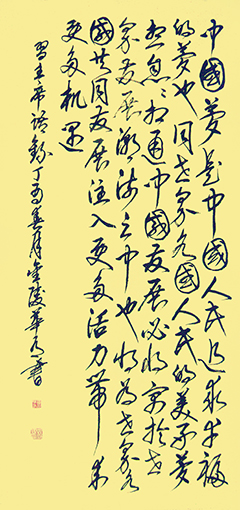 中國夢是中國人民追求幸福
的夢也同世界各國人民的美好夢
想息息相通中國發展必將寓於世
界發展潮流之中也將為世界各
國共同發展注入更多活力帶來
更多機遇
習主席語錄丁酉春月金陵華書